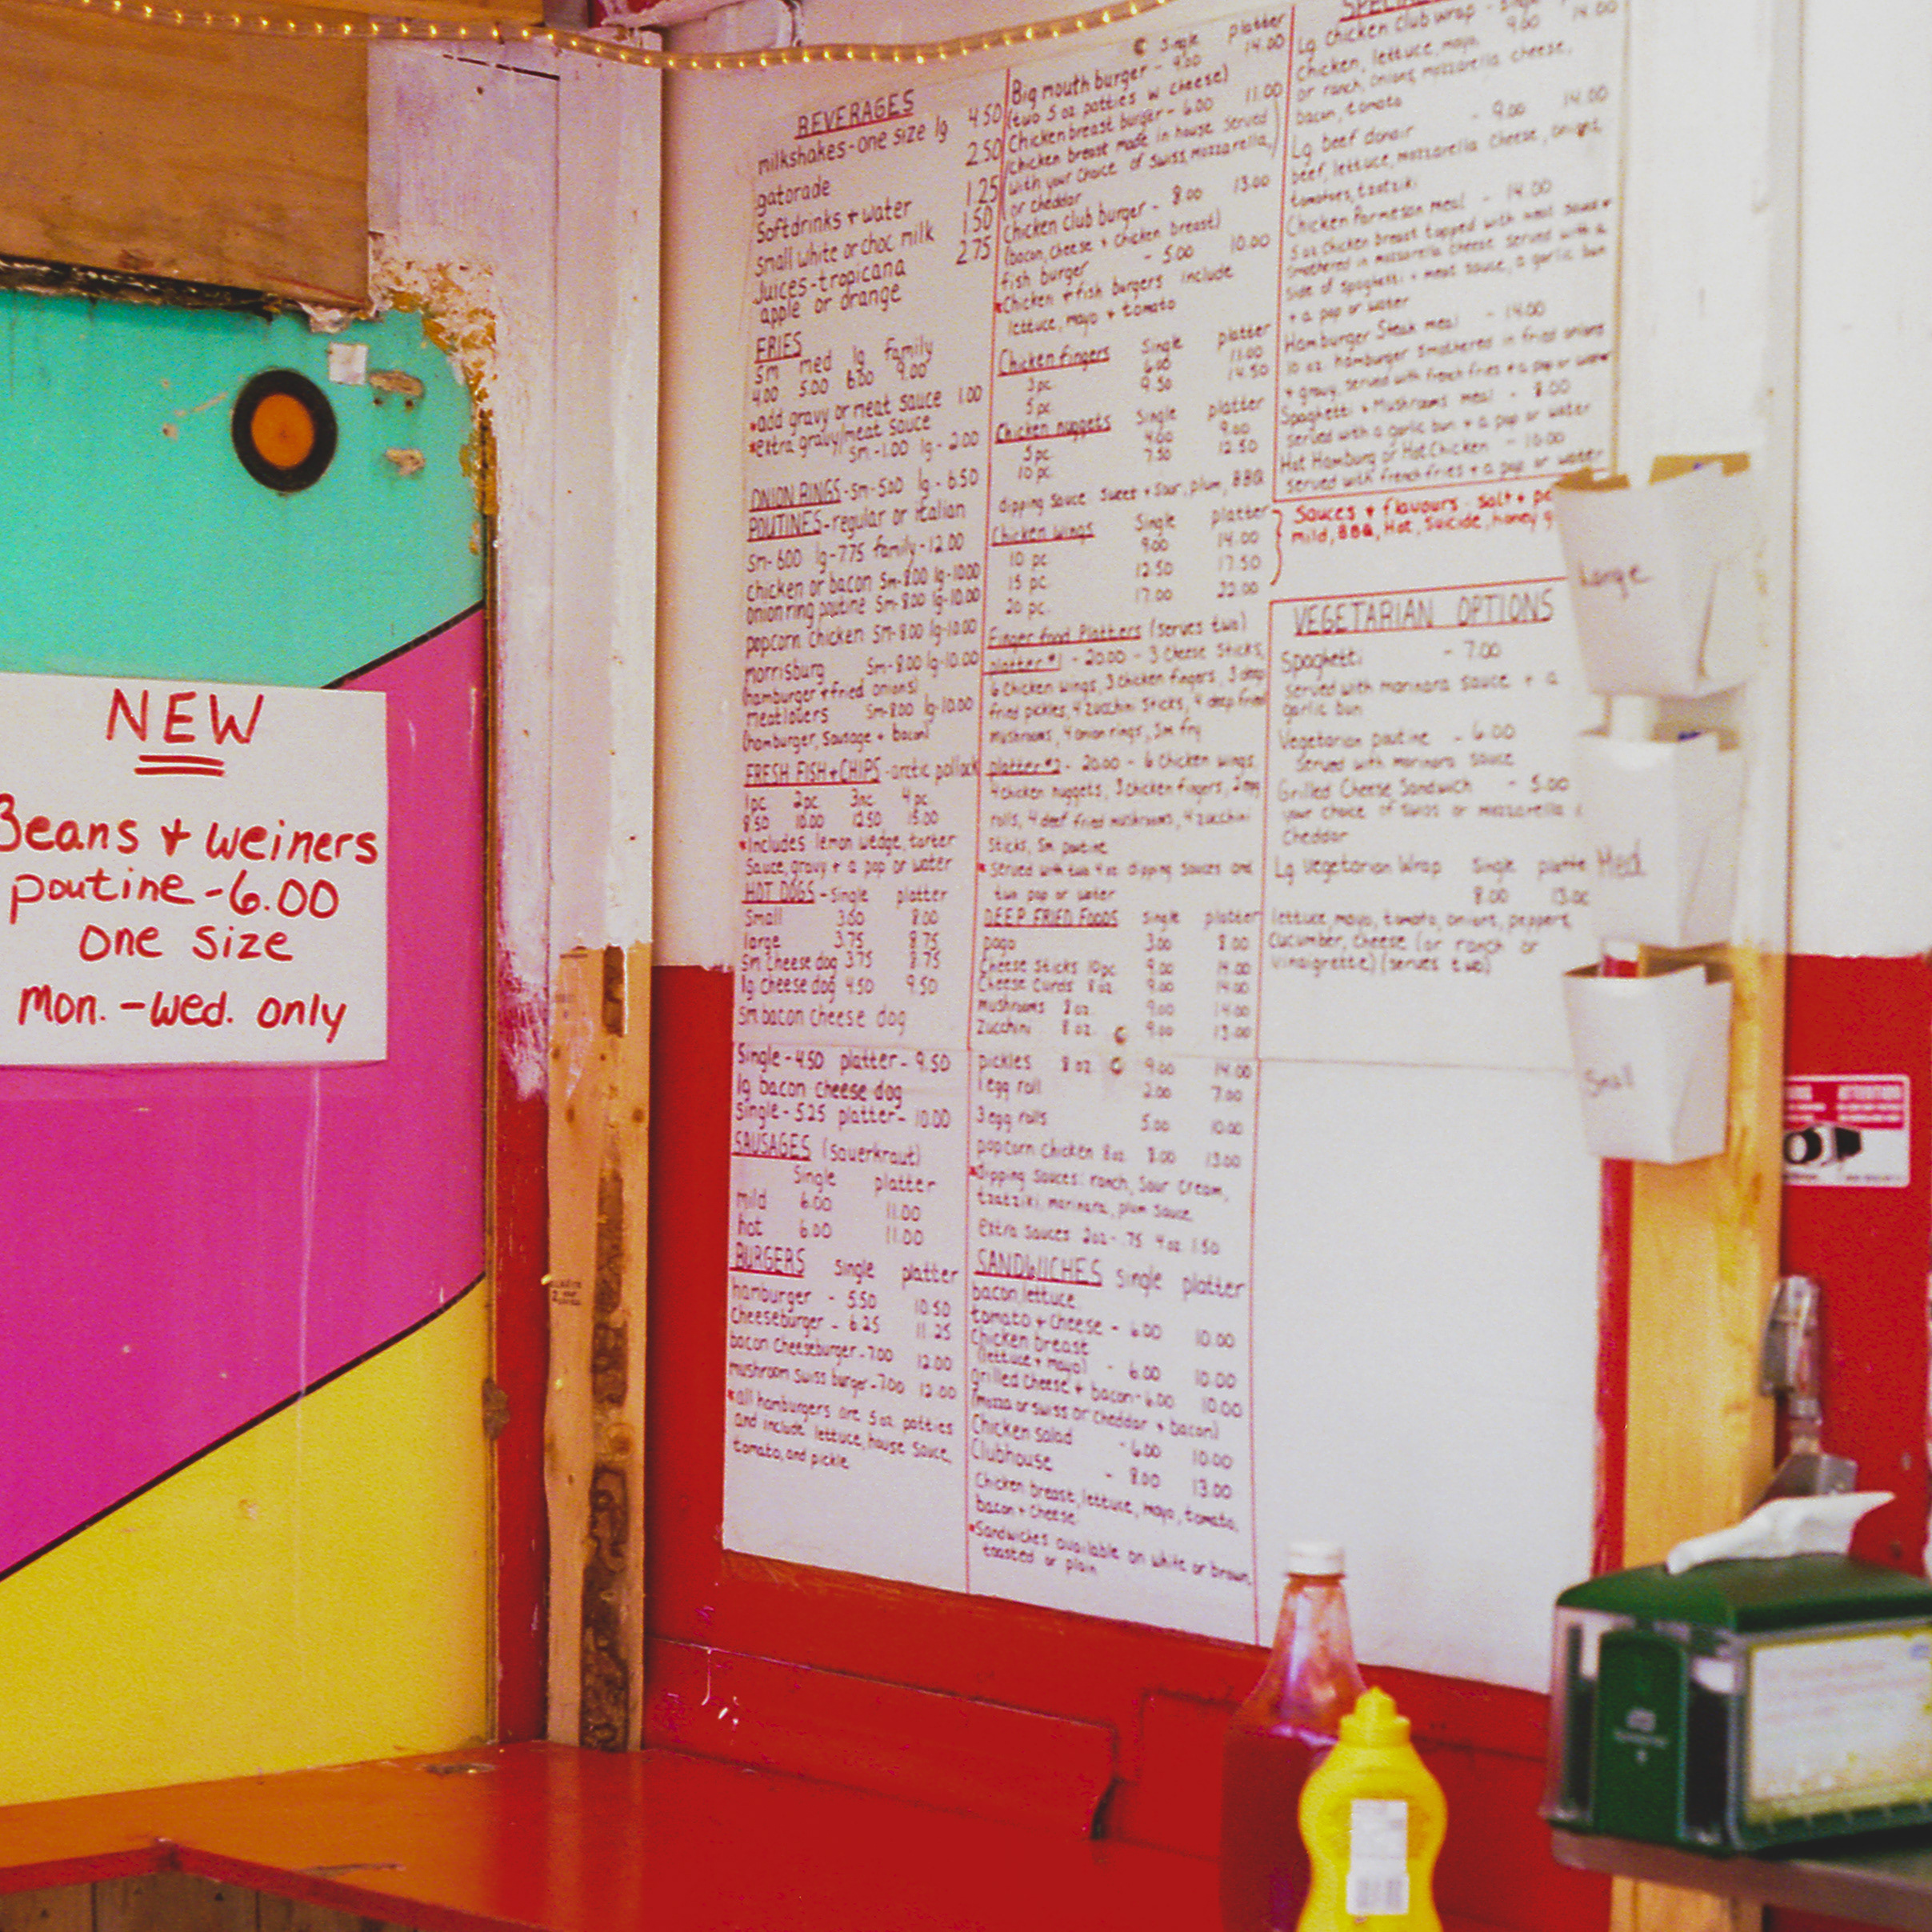 NEW
Beans + weiners
poutine - 6.00
one size
mon. - wed. only
BEVERAGES
milkshakes - one size lg 4.50
gatorade 2.50
Softdrinks + water 1.25
Small white or choc milk 1.50
Juices - tropicana 2.75
apple or orange
FRIES
Sm med lg family
4.00 5.00 6.00 9.00
*add gravy or meat sauce 1.00
*extra gravy/meat sauce
Sm - 1.00 lg - 2.00
ONION RINGS - sm - 5.00 lg - 6.50
POUTINES - regular or italian
Sm - 6.00 lg - 7.75 family - 12.00
chicken or bacon Sm - 8.00 lg - 10.00
Onion ring poutine Sm - 8.00 lg - 10.00
popcorn chicken Sm - 8.00 lg - 10.00
morrisburg Sm - 8.00 lg - 10.00
(hamburger + fried onions)
meatlovers Sm - 8.00 lg - 10.00
(hamburger, sausage + bacon)
FRESH FISH + CHIPS - arctic pollock
1pc. 2pc. 3pc. 4pc.
8.50 10.00 12.50 15.00
*Includes lemon wedge, tarter
Sauce, gravy + a pop or water
HOT DOGS - Single platter
Small 3.50 8.00
large 3.75 8.75
Sm cheese dog 3.75 8.75
lg cheese dog 4.50 9.50
Sm bacon cheese dog
Single - 4.50 platter - 9.50
lg bacon cheese dog
Single - 5.25 platter - 10.00
SAUSAGES (Sauerkraut)
Single platter
mild 6.00 11.00
hot 6.00 11.00
BURGERS Single platter
hamburger - 5.50 10.50
Cheeseburger - 6.25 11.25
bacon Cheeseburger - 7.00 12.00
mushroom Swiss burger - 7.00 12.00
*all hamburgers are 5 oz patties
and include lettuce, house Sauce,
tomato, and pickle
Single platter
Big mouth burger - 9.00 14.00
(two 5 oz patties w cheese)
Chicken breast burger - 6.00 11.00
(Chicken breast made in house served
with your choice of Swiss, mozzarella,
or cheddar
Chicken club burger - 8.00 13.00
(bacon, cheese + chicken breast)
fish burger - 5.00 10.00
*Chicken + fish burgers include
lettuce, mayo + tomato
Chicken fingers Single platter
3pc. 6.00 11.00
5pc. 9.50 14.50
Chicken nuggets Single platter
5pc. 4.00 9.00
10 pc. 7.50 12.50
dipping sauce Sweet + Sour, plum, BBQ
Chicken wings Single platter
10 pc 9.00 14.00
15 pc. 12.50 17.50
20 pc. 17.00 22.00
Finger food Platters (serves two)
platter #1 - 20.00 - 3 Cheese Sticks,
6 Chicken wings, 3 Chicken fingers, 3 deep
fried pickles, 4 zucchini Sticks, 4 deep fried
mushrooms, 4 onion rings, Sm fry
platter #2 - 20.00 - 6 Chicken wings,
4 chicken nuggets, 3 chicken fingers, 2 egg
rolls, 4 deef fried mushrooms, 4 zucchini
Sticks, Sm poutine
*Served with two 4oz dipping sauces and
two pop or water
DEEP FRIED FOODS Single platter
pogo 3.00 8.00
Cheese Sticks 10pc 9.00 14.00
Cheese Curds 8 oz. 9.00 14.00
mushrooms 8 oz. 9.00 14.00
Zucchini 8 oz. 9.00 13.00
pickles 8 oz. 9.00 14.00
1 egg roll 2.00 7.00
3 egg rolls 5.00 10.00
popcorn chicken 8 oz. 8.00 13.00
*Dipping Sauces: ranch, Sour Cream,
tzatziki, marinara, plum Sauce,
extra Sauces 2oz - .75 4oz 1.50
SANDWICHES Single platter
bacon, lettuce
tomato + cheese - 6.00 10.00
Chicken breast
(lettuce + mayo) - 6.00 10.00
grilled cheese + bacon - 6.00 10.00
(mozza or swiss or cheddar + bacon)
Chicken salad - 6.00 10.00
Clubhouse - 8.00 13.00
Chicken breast, lettuce, mayo, tomato,
bacon + Cheese
*Sandwiches available on white or brown,
toasted or plain
Lg Chicken Club wrap - Single
Chicken, lettuce, mayo 9.00 14.00
or ranch, onions, mozzarella cheese,
bacon, tomato
Lg beef donair - 9.00 14.00
beef, lettuce, mozzarella cheese, onions,
tomatoes, tzatziki
Chicken Parmesan meal - 14.00
5 oz chicken breast topped with meat sauce +
Smothered in mozzarella cheese served with a
side of spaghetti + meat sauce, a garlic bun
+ a pop or water
Hamburger Steak meal - 14.00
10 oz. hamburger smothered in fried onions
+ gravy, served with french fries + a pop or water
Spaghetti + Mushrooms meal - 8.00
served with a garlic bun + a pop or water
Hot Hamburg or Hot Chicken - 10.00
served with french fries + a pop or water
Sauces + flavours - Salt + pe
mild, BBQ, Hot, Suicide, honey g
VEGETARIAN OPTIONS
Spaghetti - 7.00
served with marinara sauce + a
garlic bun
Vegetarian poutine - 6.00
Served with marinara sauce
Grilled Cheese Sandwich - 5.00
your choice of swiss or mozzarella
Cheddar
Lg Vegetarian Wrap Single platte
8.00 13.00
lettuce, mayo, tomato, onions, peppers,
Cucumber, cheese (or ranch or
vinaigrette) (serves two)
Large
Med
Small